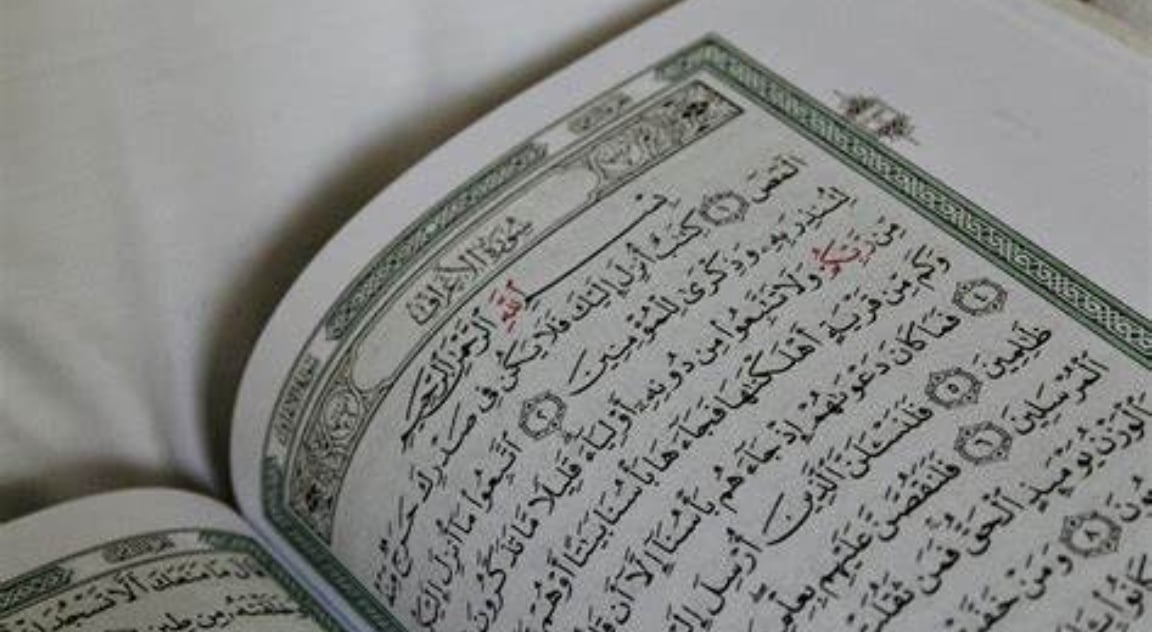 سُورَةُ الأَعْرَافِ
بِسْمِ اللَّهِ الرَّحْمَٰنِ الرَّحِيمِ
الٓمٓصٓ ١ كِتَٰبٌ أُنزِلَ إِلَيْكَ فَلَا يَكُن فِى صَدْرِكَ حَرَجٌ مِّنْهُ
لِتُنذِرَ بِهِۦ وَذِكْرَىٰ لِلْمُؤْمِنِينَ ٢ ٱتَّبِعُوا۟ مَآ أُنزِلَ إِلَيْكُم
مِّن رَّبِّكُمْ وَلَا تَتَّبِعُوا۟ مِن دُونِهِۦٓ أَوْلِيَآءَ قَلِيلًا مَّا تَذَكَّرُونَ
وَكَم مِّن قَرْيَةٍ أَهْلَكْنَٰهَا فَجَآءَهَا بَأْسُنَا بَيَٰتًا أَوْ هُمْ
٤ فَمَا كَانَ دَعْوَىٰهُمْ إِذْ جَآءَهُم بَأْسُنَآ إِلَّآ أَن
ظَٰلِمِينَ ٥ فَلَنَسْـَٔلَنَّ ٱلَّذِينَ أُرْسِلَ
ٱلْمُرْسَلِينَ ٦ فَلَنَقُصَّنَّ عَلَيْهِم بِعِلْمٍ
وَٱلْوَزْنُ يَوْمَئِذٍ ٱلْحَقُّ فَمَن ثَقُلَتْ
٨ وَمَنْ خَفَّتْ
كَانُوا۟
قَالَ مَا مَنَعَكَ أَلَّا تَسْجُدَ
خَلَقْتَهُۥ مِن طِينٍ